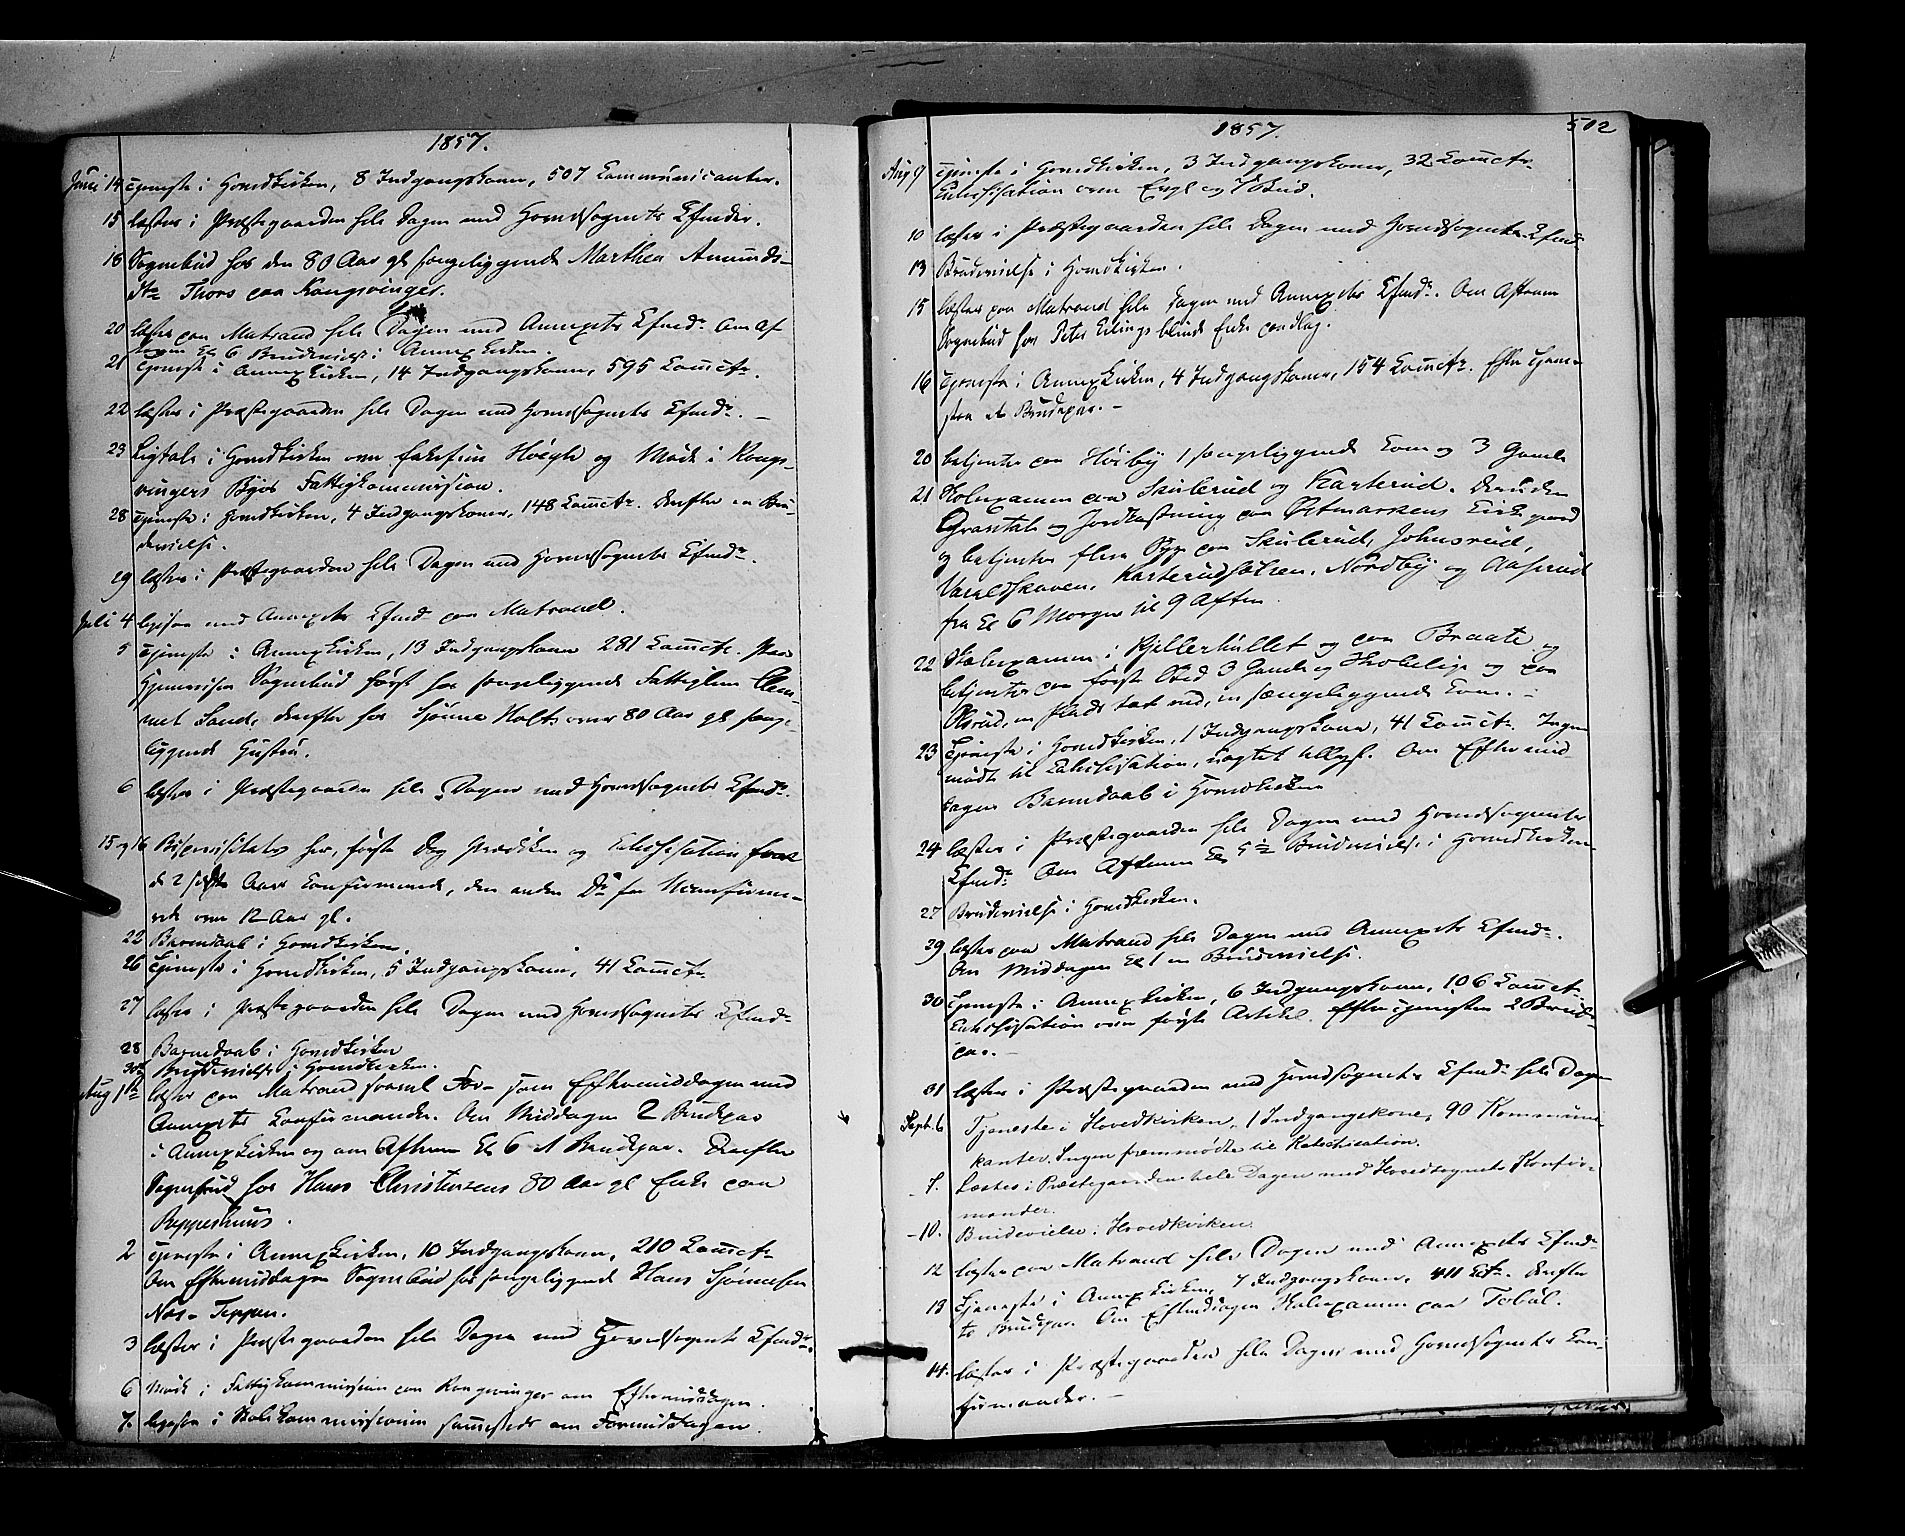 1857.
Juni 14 Tjeneste i Hovedkirken, 8 Indgangskoner, 507 Communicanter.
15 læste i Præstegaarden hele Dagen med Hovedsognets Cfmder.
18 Sognebud hos den 80 Aar gl sengeliggende Marthea Amunds-
dtr Thors paa Kongsvinger.
20 læste paa Matrand hele Dagen med Annexets Cfmdr. Om Af
tenen Kl 6 Brudevielse i Annexkirken.
21 Tjeneste i Annexkirken, 14 Indgangskoner, 595 Comctr.
22 læste i Præstegaarden hele Dagen med Hovedsognets Cfmdr. —
23 Ligtale i Hovedkirken over Høegh og Møde i Kongs-
vingers Byes Fattigkommission.
28 Tjeneste i Hovedkirken, 4 Indgangskoner, 148 Comctr. Derefter en Bru-
devielse.
29 læste i Præstegaarden hele Dagen med Hovedsognets Cfmdr.
Juli 4 ligesaa med Annexets Cfmd paa Matrand.
5 Tjeneste i Annexkirken, 13 Indgangskoner 281 Comctr. Paa
Hjemreisen Sognebud først hos sengeliggende Fattiglem Clem-
met Sand, derefter hos Sjønne Holts over 80 Aar gl senge-
liggende Hustru.
6 læste i Præstegaarden hele Dagen med Hovedsognets Cfmdr.
15 og 16 Bispevisitats her, første Dag Prædiken og Catechisation for
de 2 sidste Aars Confirmerede, den anden Do for Uconfirme-
rede over 12 Aar gl.
22 Barnedaab i Hovedkirken.
26 Tjeneste i Hovedkirken, 5 Indgangskoner, 41 Comctr
27 læste i Præstegaarden hele Dagen med Hovedsognets Cfmdr
28 Barnedaab i Hovedkirken
30te Brudevielse i Hovedkirken.
Aug 1ste læste paa Matrand saavel For- som Eftermiddagen med
Annexets Confirmander. Om Middagen 2 Brudepar
i Annexkirken og om Aftenen Kl 6 1 Brudepar. Derefter
Sognebud hos Hans Christensens 80 Aar gl Enke paa
Reppershuus.
2 Tjeneste i Annexkirken, 10 Indgangskoner, 210 Comctr
Om Eftermiddagen Sognebud hos sengeliggende Hans Sjønnesen
Nor-Teppen.
3 læste i Præstegaarden hele Dagen med Hovedsognets Cfmdr.
6 Møde i Fattigkommission paa Kongsvinger om Eftermiddagen.
7. ligesaa i Skolekommissionen sammesteds om Formiddagen.
1857. 502
Aug 9 Tjeneste i Hovedkirken, 3 Indgangskoner, 32 Comctr.
Catechisation over Evgl og 7 Bud.
10 læste i Præstegaarden hele Dagen med Hovedsognets Cfmdr
13 Brudevielse i Hovedkirken.
15 læste paa Matrand hele Dagen med Annexets Cfmdr. Om Aftenen
Sognebud hos Peter Erlings blinde Enke paa
16 Tjeneste i Annexkirken, 4 Indgangskoner, 154 Comctr. Efter Tjene-
sten et Brudepar. —
20 betjente paa Høiby 1 sengeliggende Kone og 3 Gamle
21 Skoleexamen paa Skulerud og Kasterud. Desuden
Gravtale og Jordkastning paa Østmarkens Kirkegaard
og betjente flere Syge paa Skulerud, Johnsrud,
Varaldskoven, Kasterudsætren, Nordby og Aaserud
fra Kl 6 Morgen til 9 Aften.
22 Skoleexamen i Kjellerhullet og paa Braate og
betjente paa første Sted 3 Gamle og Skrøbelige og paa
en Plads tæt ved, en sengeliggende Kone. —
23 Tjeneste i Hovedkirken, 1 Indgangskone, 41 Comctr. Ingen
mødte til Catechisation, uagtet tillyst. Om Eftermid-
dagen Barnedaab i Hovedkirken
24 læste i Præstegaarden hele Dagen med Hovedsognets
Cfmdr. Om Aftenen Kl 5½ Brudevielse i Hovedkirken.
27 Brudevielse i Hovedkirken.
29 læste paa Matrand hele Dagen med Annexets Cfmdr.
Om Middagen Kl 1 en Brudevielse.
30 Tjeneste i Annexkirken, 6 Indgangskoner, 106 Comctr.
Catechisation over første Artikel. Efter Tjenesten 2 Brude-
par. —
31 læste i Præstegaarden med Hovedsognets Cfmdr hele Dagen
Sept. 6 Tjeneste i Hovedkirken, 1 Indgangskone, 90 Kommuni-
kanter. Ingen fremmødte til Katechisation.
- 7. Læstes i Præstegaarden hele Dagen med Hovedsognets Konfir-
mander.
- 10. Brudevielse i Hovedkirken.
12 læste paa Matrand hele Dagen med Annexets Cfmdr
13 Tjeneste i Annexkirken, 7 Indgangskoner, 411 Cctr. Derefter
to Brudepar. Om Eftermdagen Skoleexamen paa Tobøl.
14. læste i Præstegaarden hele Dagen med Hovedsognets Con-
firmander. —